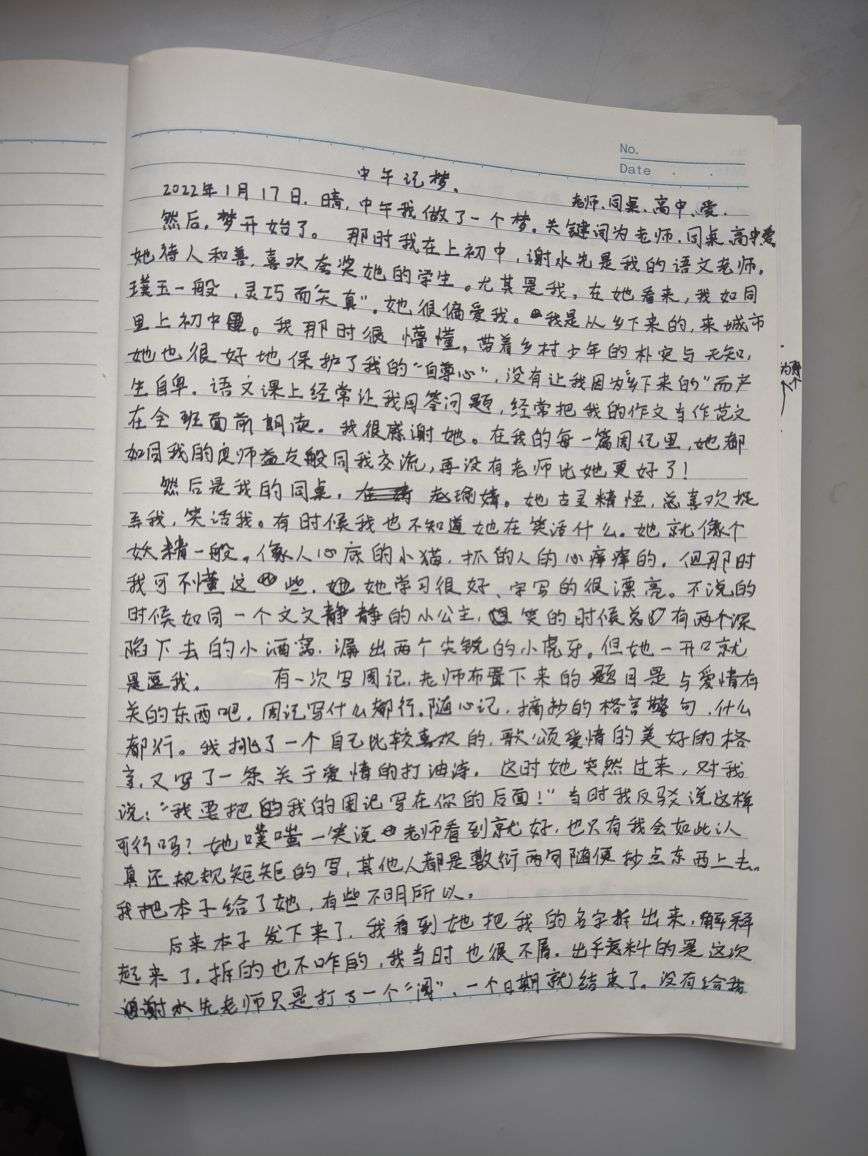 No.
Date
中午记梦.
老师、同桌、高中、爱.
2022年1月17日,晴,中午我做了一个梦。关键词为老师、同桌、高中、爱
然后,梦开始了。那时我在上初中,谢水先是我的语文老师。
她待人和善,喜欢夸奖她的学生。尤其是我,在她看来,我如同
璞玉一般,灵巧而“天真”。她很偏爱我。我是从乡下来的,来城市
里上初中。我那时很懵懂,带着乡村少年的朴实与无知,
她也很好地保护了我的“自尊心”,没有让我因为“乡下来的”而产
生自卑。语文课上经常让我回答问题,经常把我的作文当作范文
在全班面前朗读。我很感谢她。在我的每一篇周记里,她都
如同我的良师益友般同我交流,再没有老师比她更好了!
然后是我的同桌,赵瑜婧。她古灵精怪,总喜欢捉
弄我,笑话我。有时候我也不知道她在笑话什么。她就像个
妖精一般。像人心底的小猫,抓的人的心痒痒的。但那时
我可不懂这些,她学习很好、字写的很漂亮。不说的
时候如同一个文文静静的小公主,笑的时候总有两个深
陷下去的小酒窝,漏出两个尖锐的小虎牙。但她一开口就
是逗我。 有一次写周记,老师布置下来的题目是与爱情有
关的东西吧,周记写什么都行。随心记,摘抄的格言警句,什么
都行。我挑了一个自己比较喜欢的,歌颂爱情的美好的格
言,又写了一条关于爱情的打油诗。这时她突然过来,对我
说:“我要把我的周记写在你的后面!”当时我反驳说这样
可行吗?她噗嗤一笑说老师看到就好,也只有我会如此认
真还规规矩矩的写,其他人都是敷衍两句随便抄点东西上去。
我把本子给了她,有些不明所以。
后来本子发下来了,我看到她把我的名字拆出来,解释
起来了。拆的也不咋的,我当时也很不屑。出乎意料的是这次
谢水先老师只是打了一个“阅”、一个日期就结束了。没有给我